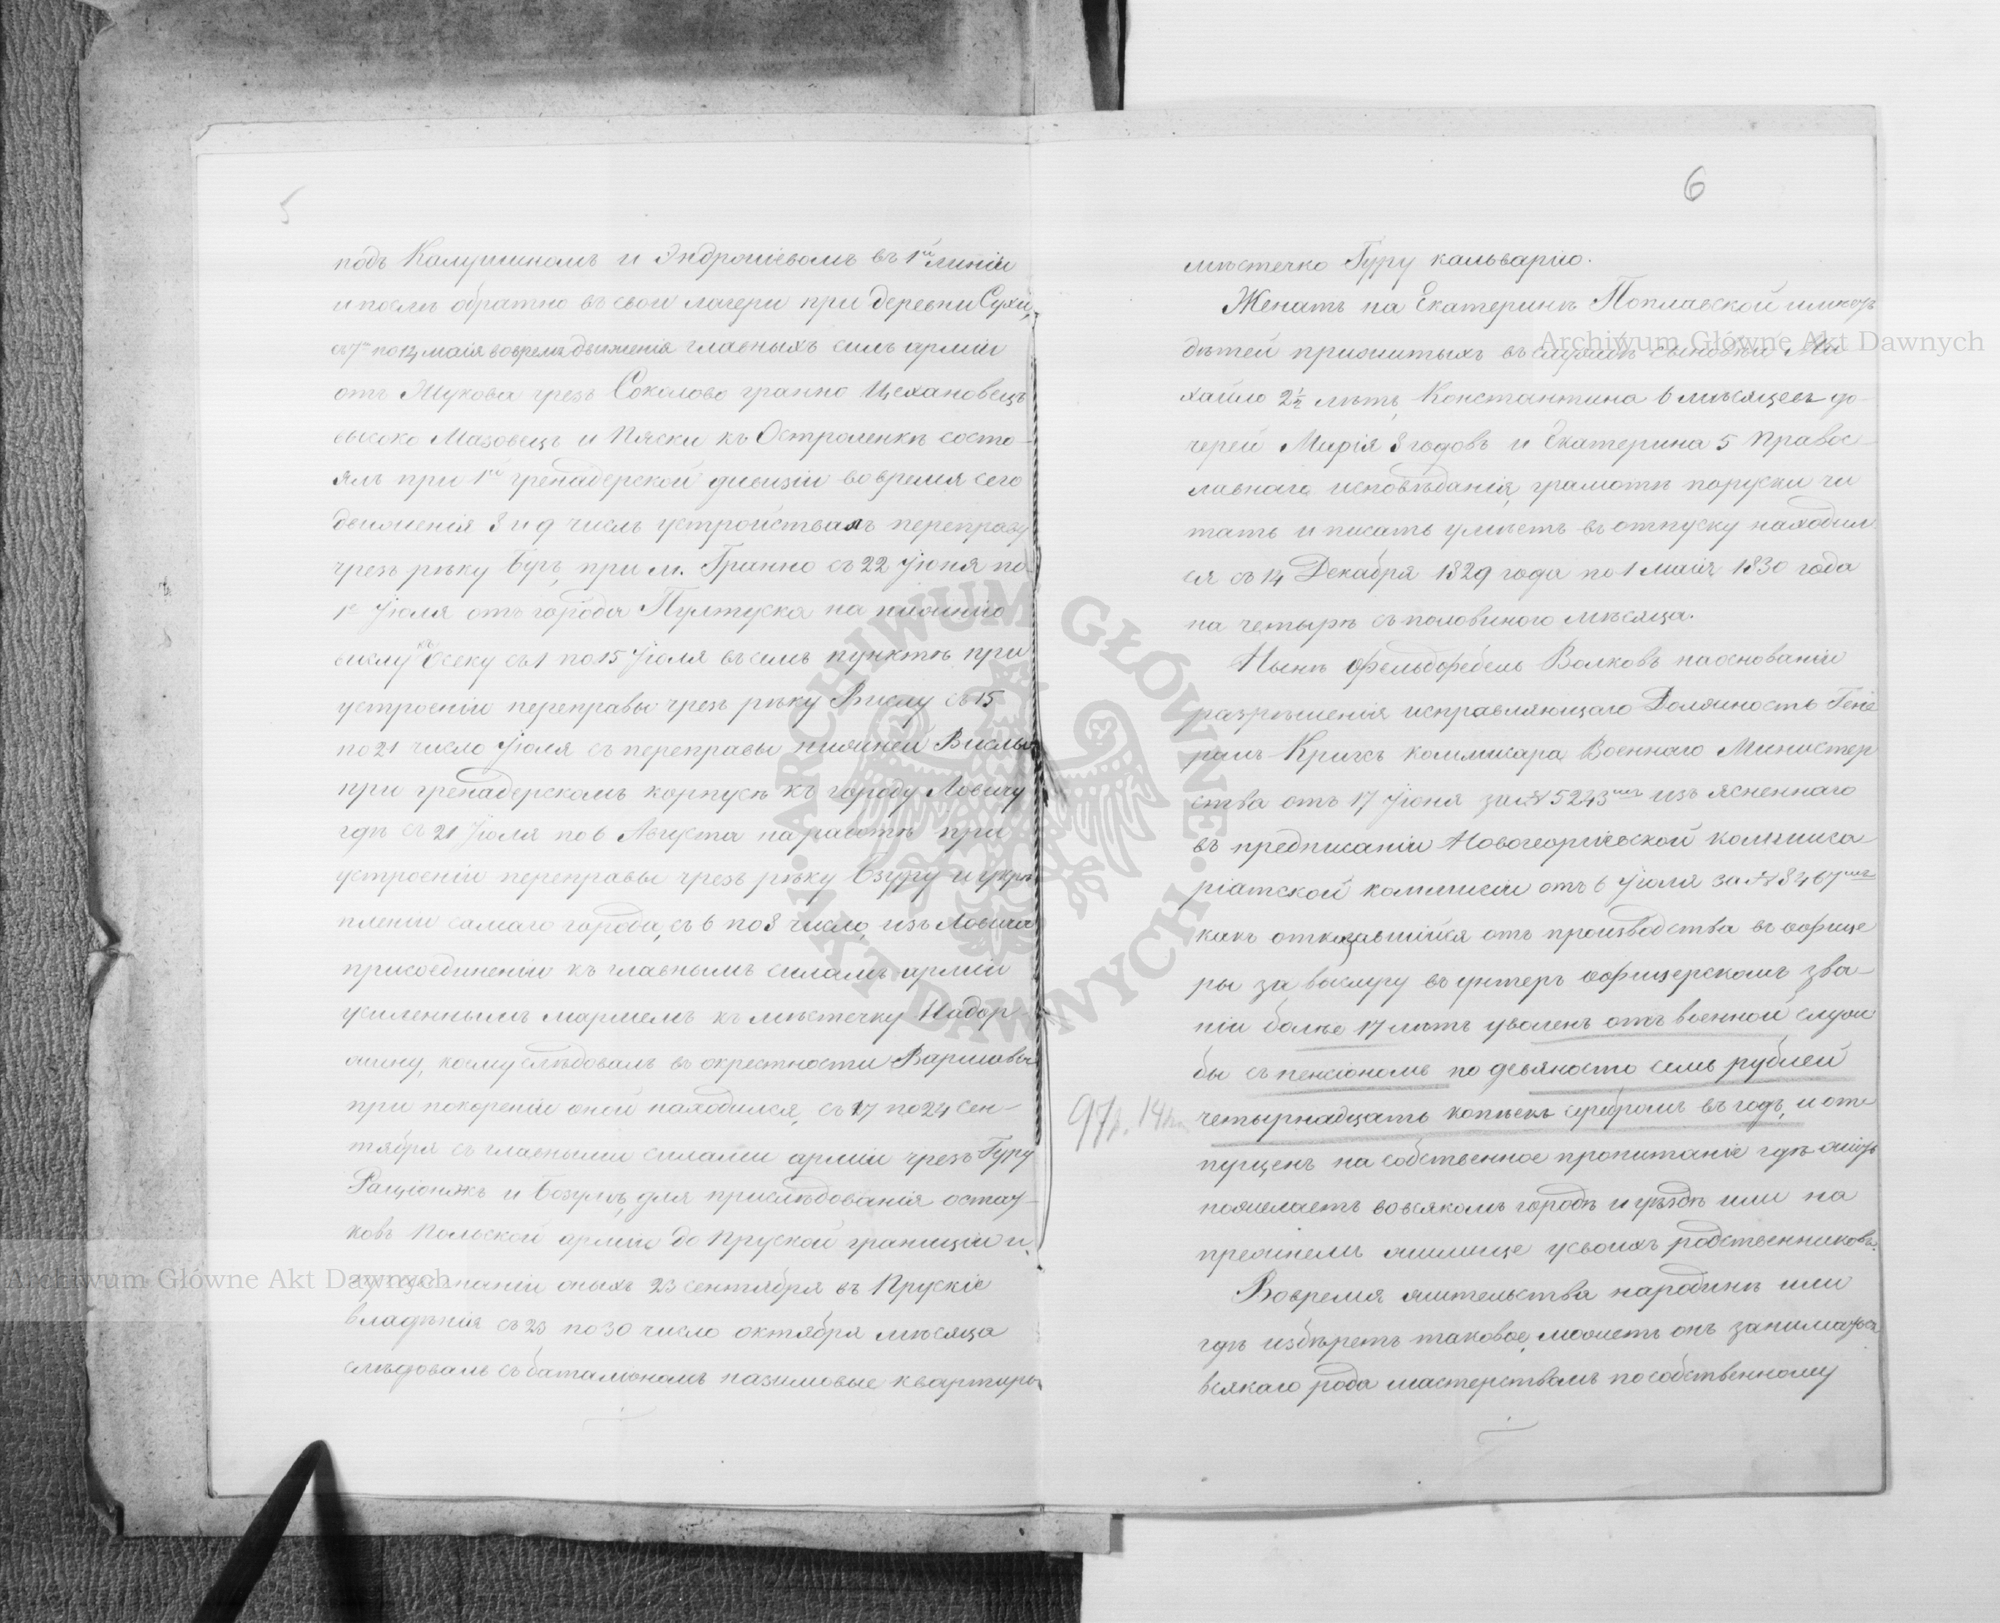 5
подъ Калушиномъ и Эндржіевомъ въ 1й линіи
и послѣ обратно въ свои лагери при деревни Сухи,
съ 7го по 14 маія вовремя движенія главныхъ силъ арміи
отъ Жукова чрезъ Соколово гранно Цехановецъ
высоко Мазовецъ и Пяски къ Остроленкѣ состо-
ялъ при 1й гренадерской дивизіи вовремя сего
движенія 8 и 9 числъ устройствалъ переправу
чрезъ рѣку Бугъ, при м. Гранно съ 22 Іюня по
1е Іюля отъ города Пултуска на нижнію
вислу къ Осеку съ 1 по 15 Іюля въ семъ пунктѣ при
устроеніи переправы чрезъ рѣку Вислу съ 15
по 21 число Іюля съ переправы нижней Вислы
при гренадерскомъ корпусѣ къ городу Ловичу
гдѣ съ 21 Іюля по 6 Августа на работѣ при
устроеніи переправы чрезъ рѣку Бзуру и укрѣ
пленіи самаго города, съ 6 по 8 число, изъ Ловича
присоединеніи къ главнымъ силамъ арміи
усиленнымъ маршемъ къ мѣстечку Надор
жину, коему слѣдовалъ въ окрестности Варшавы
при покореніи оной находился, съ 17 по 24 сен-
тября съ главными силами арміи чрезъ Гуру
Раціонжъ и для прислѣдованія остат-
ковъ Польской арміи до Пруской границіи и
оныхъ 23 сентября въ Прускіе
владѣнія съ 23 по 30 число октября мѣсяца
слѣдовалъ съ баталіономъ назимовые квартиры
6
мѣстечко Гуру кальварію.
Женатъ на Екатеринѣ Поплавской имѣетъ
дѣтей прижитыхъ въ службѣ сыновей Ми
хайло 2½ лѣтъ, Константина 6 мѣсяцевъ до-
черей Марія 8 годовъ и Екатерина 5 правос-
лавнаго исповѣданія, грамотѣ поруски чи
тать и писать умѣетъ въ отпуску находил
ся съ 14 Декабря 1829 года по 1 маія 1830 года
на четырѣ съ половиного мѣсяца.
Нынѣ фельдфебель Волковъ на основаніи
разрѣшенія исправляющаго Должность Гене
ралъ-Кригсъ коммисара Военнаго Министер
ства отъ 17 Іюня за № 5243мъ изъ ясненнаго
въ предписаніи Новогеоргіевской коммиса
ріатской комиисіи отъ 6 Іюля за № 8467мъ
какъ отказавшійся отъ производства въ офице
ры за выслугу въ унтеръ офицерскомъ зва-
ніи болѣе 17 лѣтъ уволенъ отъ военной служ
бы съ пенсіономъ по девяносто семь рублей
97р. 14к.
четырнадцать копѣекъ серебромъ въ годъ, и отъ
пущенъ на собственное пропитаніе гдѣ житъ
пожелаетъ вовсякомъ городѣ и уѣздѣ или на
прежнемъ жилище усвоихъ родственниковъ.
Вовремя жительства народинѣ или
гдѣ избѣретъ таковое, можетъ онъ заниматься
всякаго рода мастерствомъ по собственному
Archiwum Główne Akt Dawnych
Archiwum Główne Akt Dawnych
ARCHIWUM GŁÓWNE · AKT DAWNYCH ·